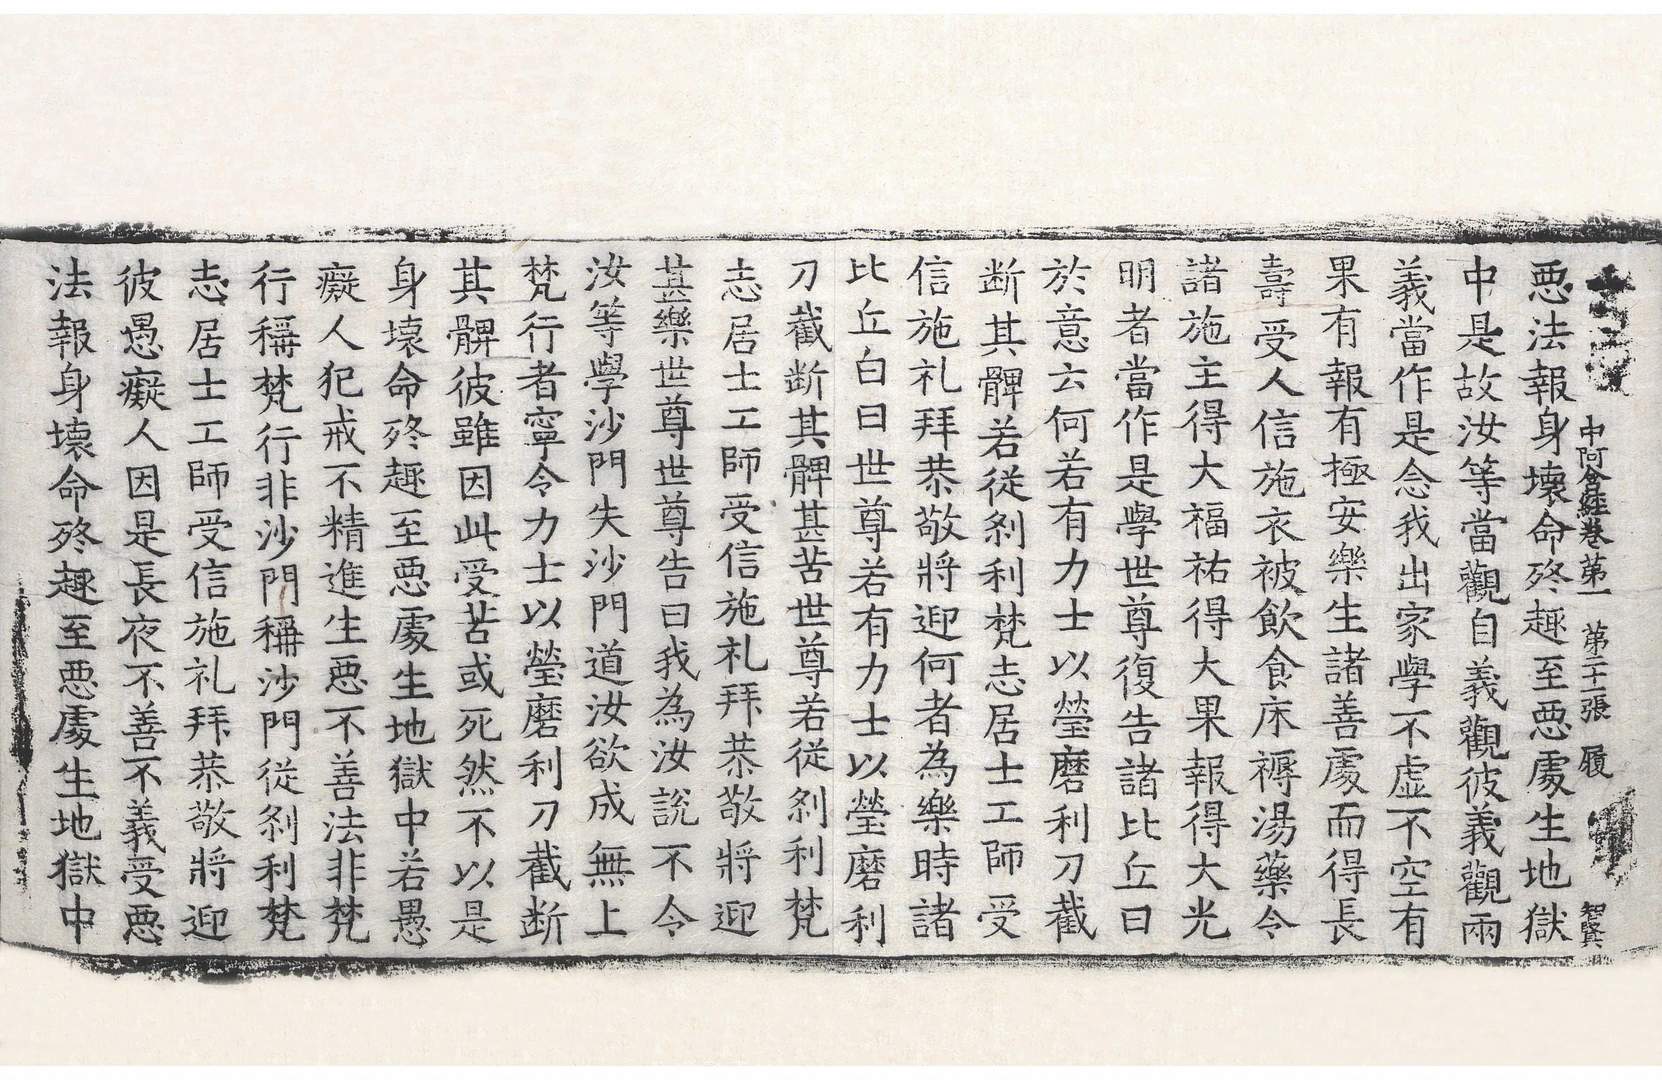 中阿含經卷第一　第二十一張　履　智賢
惡法報身壞命終趣至惡處生地獄
中是故汝等當觀自義觀彼義觀兩
義當作是念我出家學不虛不空有
果有報有極安樂生諸善處而得長
壽受人信施衣被飲食床褥湯藥令
諸施主得大福祐得大果報得大光
明者當作是學世尊復告諸比丘曰
於意云何若有力士以瑩磨利刀截
断其髀若從刹利梵志居士工師受
信施礼拜恭敬將迎何者為樂時諸
比丘白曰世尊若有力士以瑩磨利
刀截断其髀甚苦世尊若從刹利梵
志居士工師受信施礼拜恭敬將迎
甚樂世尊世尊告曰我為汝說不令
汝等學沙門失沙門道汝欲成無上
梵行者寧令力士以瑩磨利刀截断
其髀彼雖因此受苦或死然不以是
身壞命終趣至惡處生地獄中若愚
癡人犯戒不精進生惡不善法非梵
行稱梵行非沙門稱沙門從刹利梵
志居士工師受信施礼拜恭敬將迎
彼愚癡人因是長夜不善不義受惡
法報身壞命終趣至惡處生地獄中